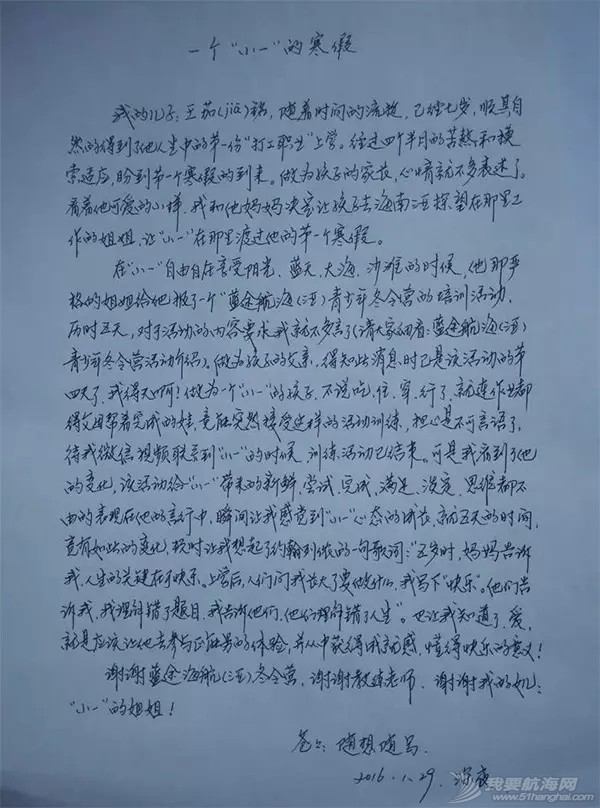 一个“小一”的寒假
我的儿子：王茄(jiā)锦，随着时间的流逝，已经七岁，顺其自
然的得到了他人生中的第一份“打工职业”上学。经过四个半月的苦熬和摸
索适应，盼到第一个寒假的到来。做为孩子的家长，心情就不多表述了。
看着他可爱的小样，我和他妈妈决定让孩子去海南(三亚)探望在那里工
作的姐姐，让“小一”在那里渡过他的第一个寒假。
在“小一”自由自在享受阳光、蓝天、大海、沙滩的时候，他那严
格的姐姐给他报了一个“蓝途航海(三亚)青少年冬令营的培训活动，
历时五天，对于活动的内容要求我就不多言了(请大家细看：蓝途航海(三亚)
青少年冬令营活动介绍)。做为孩子的父亲，得知此消息时已是该活动的第
四天了，我得天啊！做为一个“小一”的孩子，不说吃、住、穿、行了，就连作业都
得女用帮着完成的娃，竟能突然接受这样的活动训练，担心是不可言语了，
待我微信视频联系到“小一”的时候，训练活动已结束。可是我看到了他
的变化，该活动给“小一”带来的新鲜、尝试、完成、满足、淡定、思维都不
由的表现在他的言行中，瞬间让我感觉到“小一”心态的成长，就五天的时间，
竟有如此的变化，顿时让我想起了约翰列侬的一句歌词：“五岁时，妈妈告诉
我，人生的关键在于快乐。上学后，人们问我长大了要做什么，我写下“快乐”。他们告
诉我，我理解错了题目，我告诉他们，他们理解错了人生”。也让我知道了，爱，
就是应该让他去参与正能量的体验，并从中获得成就感，懂得快乐的意义！
谢谢蓝途海航(三亚)冬令营，谢谢教练老师，谢谢我的女儿：
“小一”的姐姐！
爸爸：随想随写.
2016.1.29. 深夜
我要航海网
www.51hanghai.com